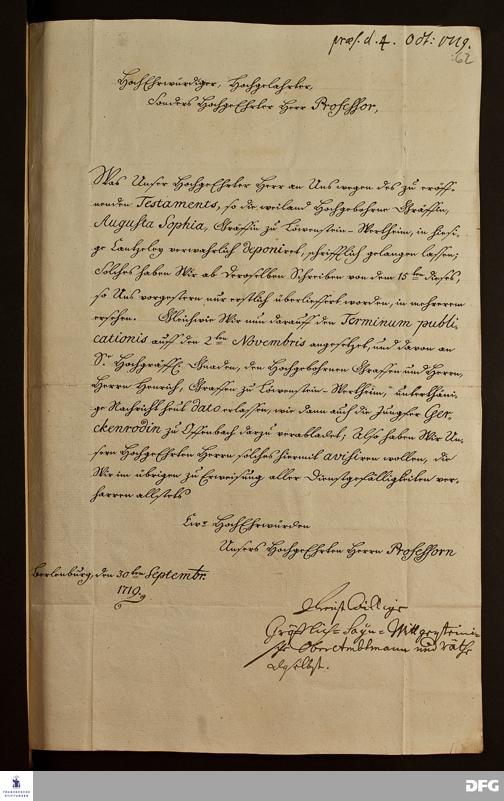 præs. d. 4. Oct: 1719.
62
HochEhrwürdiger, Hochgelahrter,
Sonders HochgeEhrter Herr Professor,
Was Unser HochgeEhrter Herr an Uns wegen des zu eröff-
nenden Testaments, so die weiland Hochgebohrne Gräffin,
Augusta Sophia, Gräffin zu Löwenstein-Wertheim, in hiesi-
ge Cantzeley verwahrlich deponiret, schrifftlich gelangen lassen;
Solches haben Wir ab deroselben Schreiben von dem 15ten dieses,
so Uns vorgestern nur erstlich überlieffert worden, in mehrerem
ersehen. Gleichwie Wir nun darauff den Terminum publi-
cationis auff den 2ten Novembris angesetzet, und davon an
Sr Hochgräffl. Gnaden, den Hochgebohrnen Graffen und Herrn,
Herrn Henrich, Graffen zu Löwenstein-Wertheim, unterthäni-
ge Nachricht heut dato erlassen, wie dann auch die Jungfer Ger-
ckenrodin zu Offenbach darzu verabladet; Also haben Wir Un-
sern HochgeEhrten Herrn solches hiermit avisiren wollen, die
Wir im übrigen zu Erweisung aller Dienstgefälligkeiten ver-
harren allstets
Ewr HochEhrwürden
Unsers HochgeEhrten Herrn Professorn
Berlenburg, den 30ten Septembr.
1719.
Dienstwillige
Gräfflich-Sayn-Wittgensteini-
sche OberAmbtmann und Räthe
daselbst.
FRANCKESCHE
STIFTUNGEN
DFG